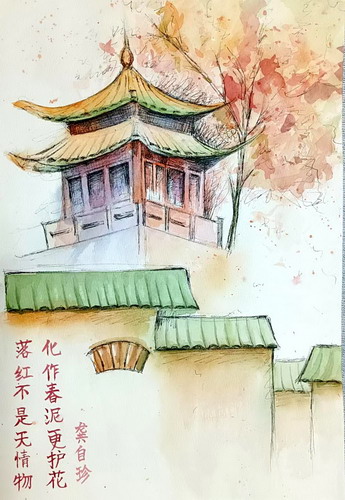 落红不是无情物
化作春泥更护花
龚自珍